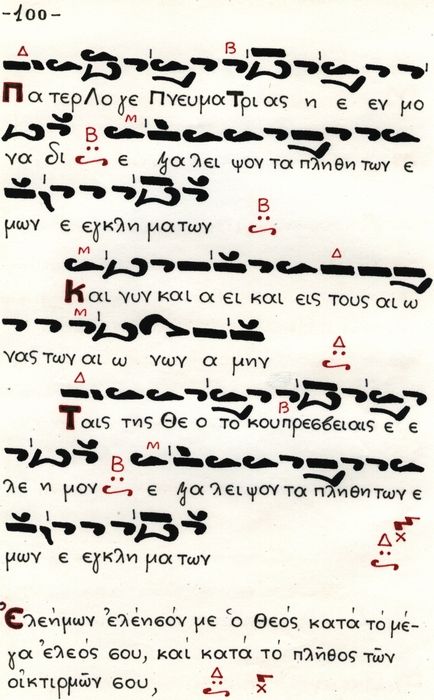 -100-
Δ Β
Πα τερ Λο γε Πνευμα Τρι ας η ε εν μο
Β Μ
να δι ε ξα λει ψον τα πληθη των ε
μων ε εγκλη ματων Β
Μ Δ
Και νυν και α ει και εις τους αι ω
Μ
νας των αι ω νων α μην Δ
Δ Β
Ταις της Θε ο το κου πρεσβειαις ε ε
Β Μ
λε η μον ε ξα λει ψον τα πληθη των ε
μων ε εγκλη μα των Δ
Ἐλεήμων ἐλέησόν με ὁ Θεός κατά τό μέ-
γα ἔλεός σου, καί κατά τό πλῆθος τῶν
οἰκτιρμῶν σου, Δ